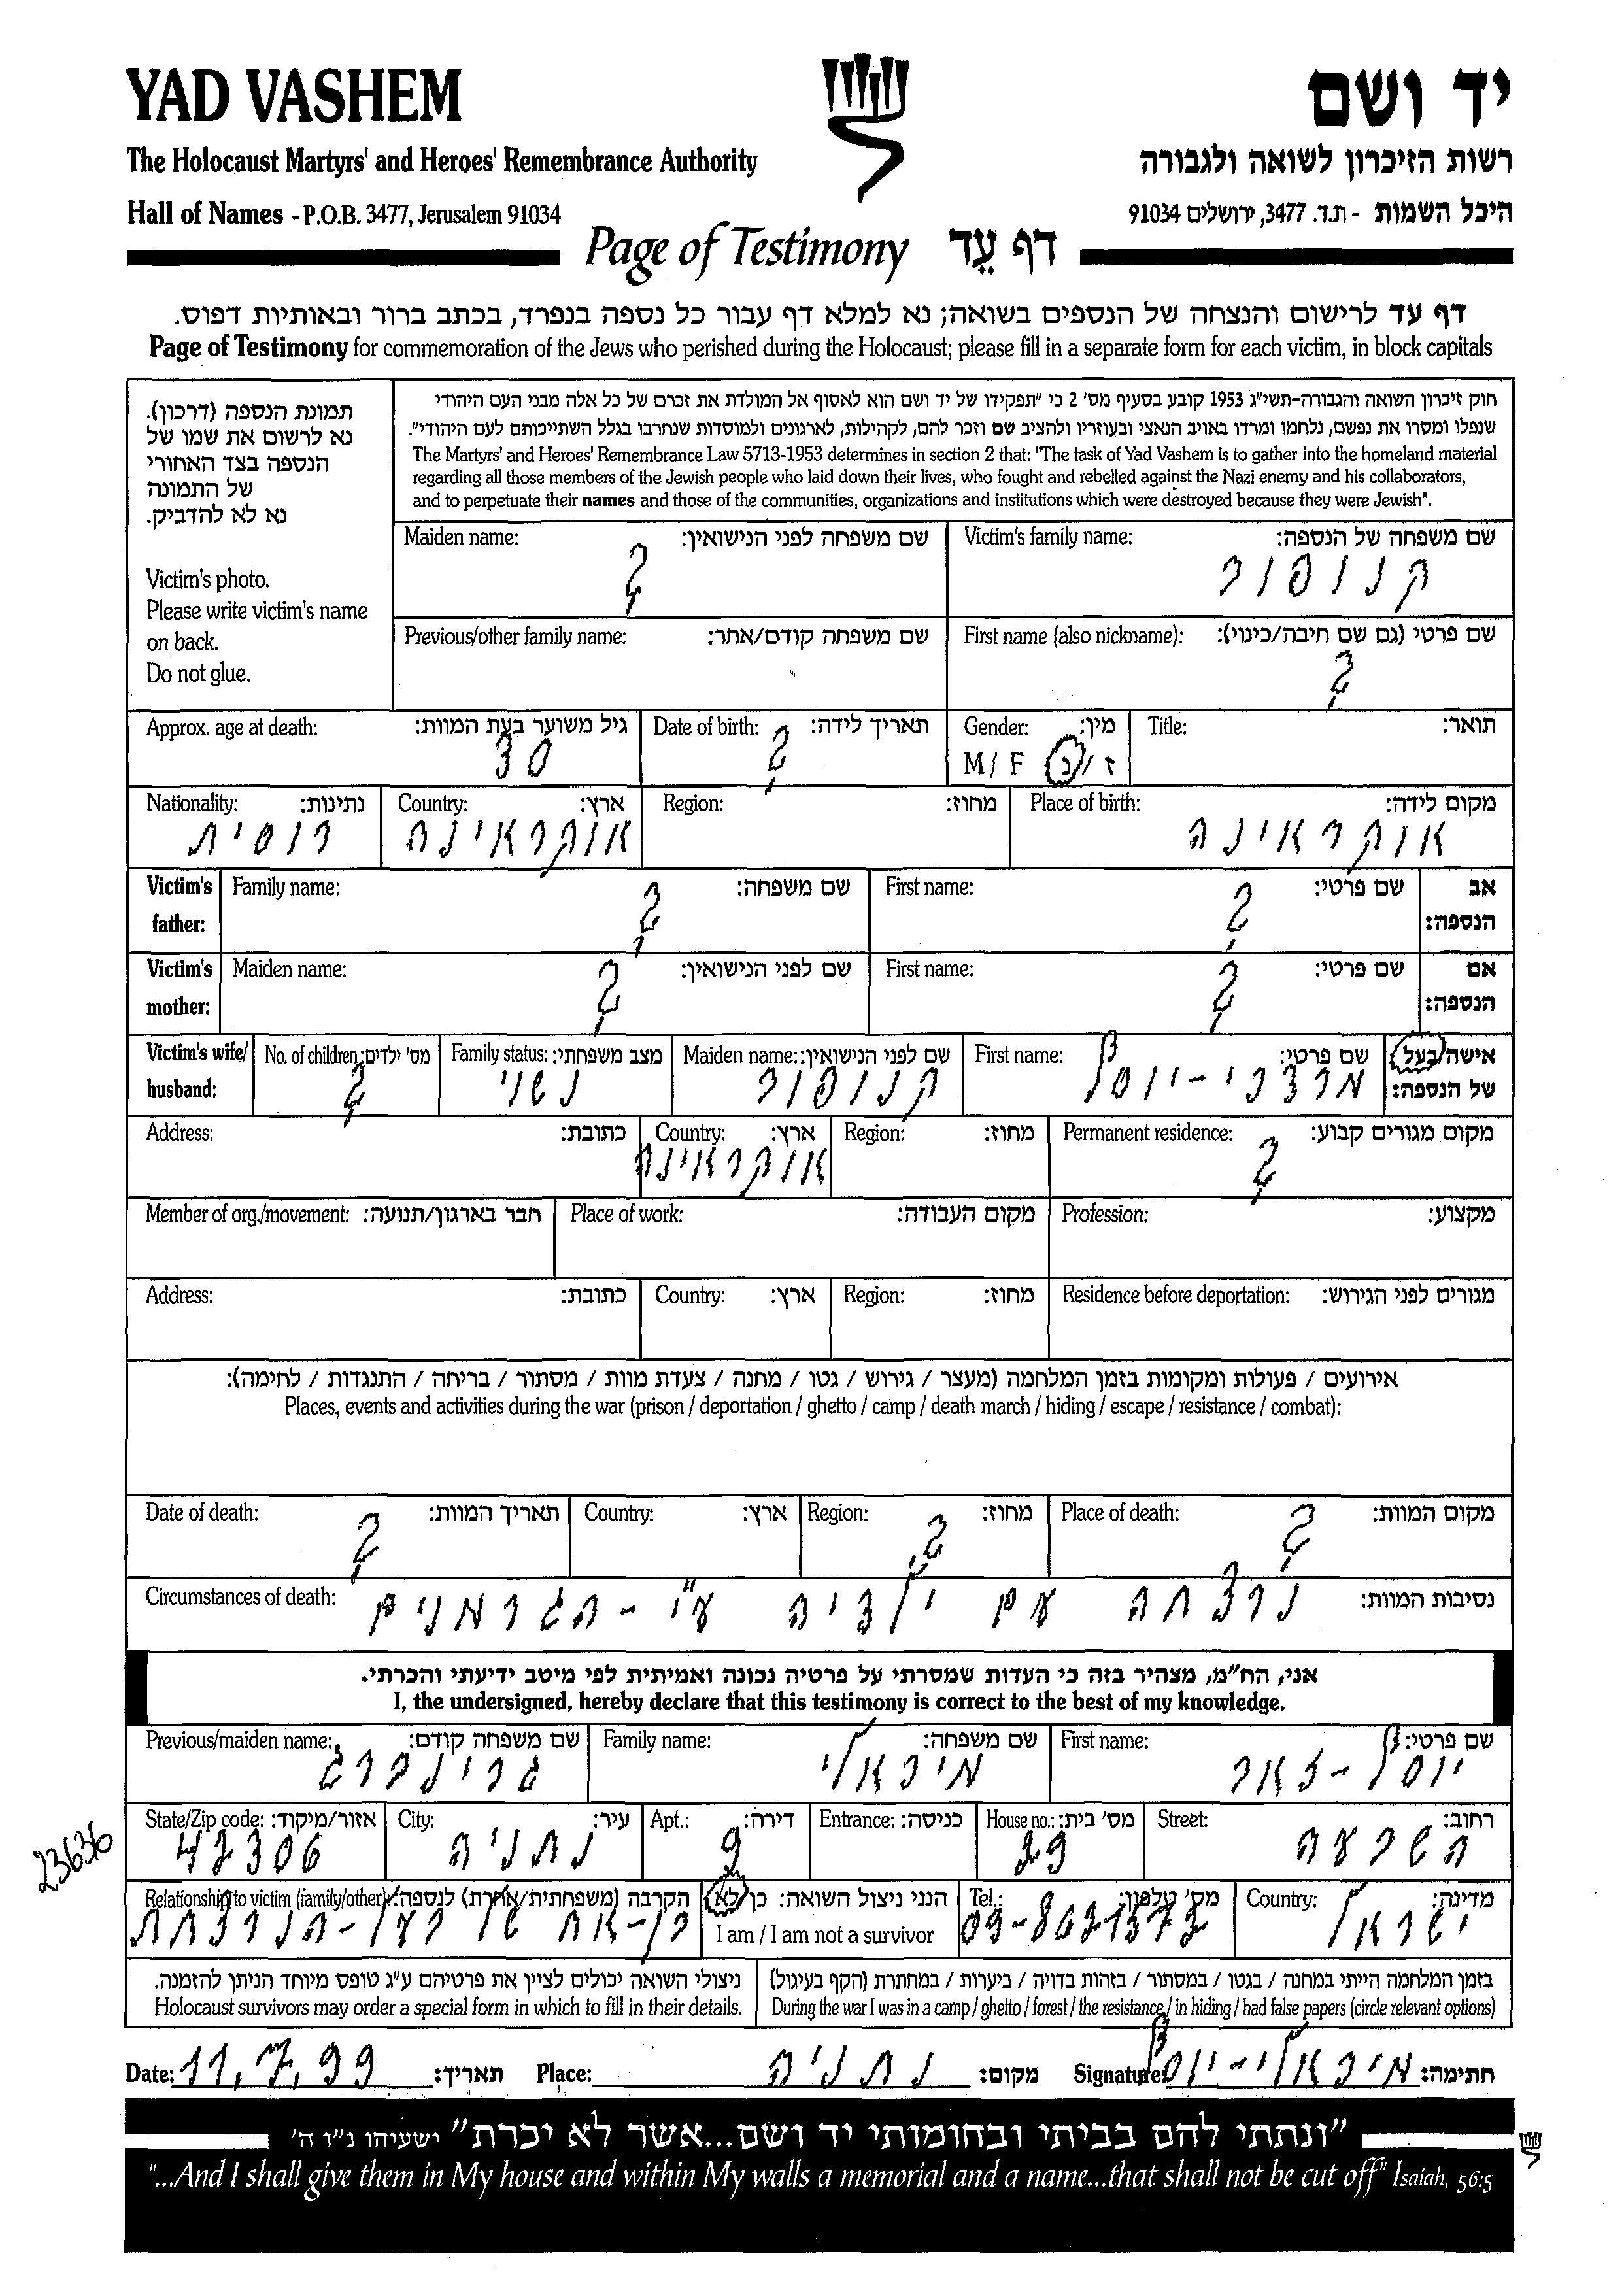 YAD VASHEM
יד ושם
The Holocaust Martyrs' and Heroes' Remembrance Authority
רשות הזיכרון לשואה ולגבורה
Hall of Names - P.O.B. 3477, Jerusalem 91034
היכל השמות - ת.ד. 3477, ירושלים 91034
Page of Testimony דף עֵד
דף עד לרישום והנצחה של הנספים בשואה; נא למלא דף עבור כל נספה בנפרד, בכתב ברור ובאותיות דפוס.
Page of Testimony for commemoration of the Jews who perished during the Holocaust; please fill in a separate form for each victim, in block capitals
תמונת הנספה (דרכון).
נא לרשום את שמו של
הנספה בצד האחורי
של התמונה
נא לא להדביק.
Victim's photo.
Please write victim's name
on back.
Do not glue.
חוק זיכרון השואה והגבורה-תשי"ג 1953 קובע בסעיף מס' 2 כי "תפקידו של יד ושם הוא לאסוף אל המולדת את זכרם של כל אלה מבני העם היהודי
שנפלו ומסרו את נפשם, נלחמו ומרדו באויב הנאצי ובעוזריו ולהציב שם וזכר להם, לקהילות, לארגונים ולמוסדות שנחרבו בגלל השתייכותם לעם היהודי".
The Martyrs' and Heroes' Remembrance Law 5713-1953 determines in section 2 that: "The task of Yad Vashem is to gather into the homeland material
regarding all those members of the Jewish people who laid down their lives, who fought and rebelled against the Nazi enemy and his collaborators,
and to perpetuate their names and those of the communities, organizations and institutions which were destroyed because they were Jewish".
Victim's family name: שם משפחה של הנספה:
קנופוב
Maiden name: שם משפחה לפני הנישואין:
?
First name (also nickname): שם פרטי (גם שם חיבה/כינוי):
?
Previous/other family name: שם משפחה קודם/אחר:
Title: תואר:
Gender: מין:
M / F ז / נ
Date of birth: תאריך לידה:
?
Approx. age at death: גיל משוער בעת המוות:
30
Place of birth: מקום לידה:
אוקראינה
Region: מחוז:
Country: ארץ:
אוקראינה
Nationality: נתינות:
רוסית
Victim's father: אב הנספה:
First name: שם פרטי:
?
Family name: שם משפחה:
?
Victim's mother: אם הנספה:
First name: שם פרטי:
?
Maiden name: שם לפני הנישואין:
?
Victim's wife/ husband: אישה/בעל של הנספה:
First name: שם פרטי:
מרדכי-יוסף
Maiden name: שם לפני הנישואין:
קנופוב
Family status: מצב משפחתי:
נשוי
No. of children: מס' ילדים:
?
Permanent residence: מקום מגורים קבוע:
?
Region: מחוז:
Country: ארץ:
אוקראינה
Address: כתובת:
Profession: מקצוע:
Place of work: מקום העבודה:
Member of org./movement: חבר בארגון/תנועה:
Residence before deportation: מגורים לפני הגירוש:
Region: מחוז:
Country: ארץ:
Address: כתובת:
אירועים / פעולות ומקומות בזמן המלחמה (מעצר / גירוש / גטו / מחנה / צעדת מוות / מסתור / בריחה / התנגדות / לחימה):
Places, events and activities during the war (prison / deportation / ghetto / camp / death march / hiding / escape / resistance / combat):
Place of death: מקום המוות:
?
Region: מחוז:
?
Country: ארץ:
Date of death: תאריך המוות:
?
Circumstances of death: נסיבות המוות:
נרצחה עם ילדיה ע"י-הגרמנים
אני, הח"מ, מצהיר בזה כי העדות שמסרתי על פרטיה נכונה ואמיתית לפי מיטב ידיעתי והכרתי.
I, the undersigned, hereby declare that this testimony is correct to the best of my knowledge.
First name: שם פרטי:
יוסף-זאב
Family name: שם משפחה:
מיכאלי
Previous/maiden name: שם משפחה קודם:
גרינברג
Street: רחוב:
השקעה
House no.: מס' בית:
29
Entrance: כניסה:
Apt.: דירה:
9
City: עיר:
נתניה
State/Zip code: אזור/מיקוד:
42306
23636
Country: מדינה:
ישראל
Tel.: מס' טלפון:
09-8621372
הנני ניצול השואה: כן / לא
I am / I am not a survivor
Relationship to victim (family/other): הקרבה (משפחתית/אחרת) לנספה:
בן-אח של בעל-הנרצחת
בזמן המלחמה הייתי במחנה / בגטו / במסתור / בזהות בדויה / ביערות / במחתרת (הקף בעיגול)
During the war I was in a camp / ghetto / forest / the resistance / in hiding / had false papers (circle relevant options)
ניצולי השואה יכולים לציין את פרטיהם ע"ג טופס מיוחד הניתן להזמנה.
Holocaust survivors may order a special form in which to fill in their details.
Date: 11.7.99 תאריך: Place: נתניה מקום: Signature: מיכאלי-יוסף חתימה:
"ונתתי להם בביתי ובחומותי יד ושם...אשר לא יכרת" ישעיהו נ"ו ה'
"...And I shall give them in My house and within My walls a memorial and a name...that shall not be cut off" Isaiah, 56:5